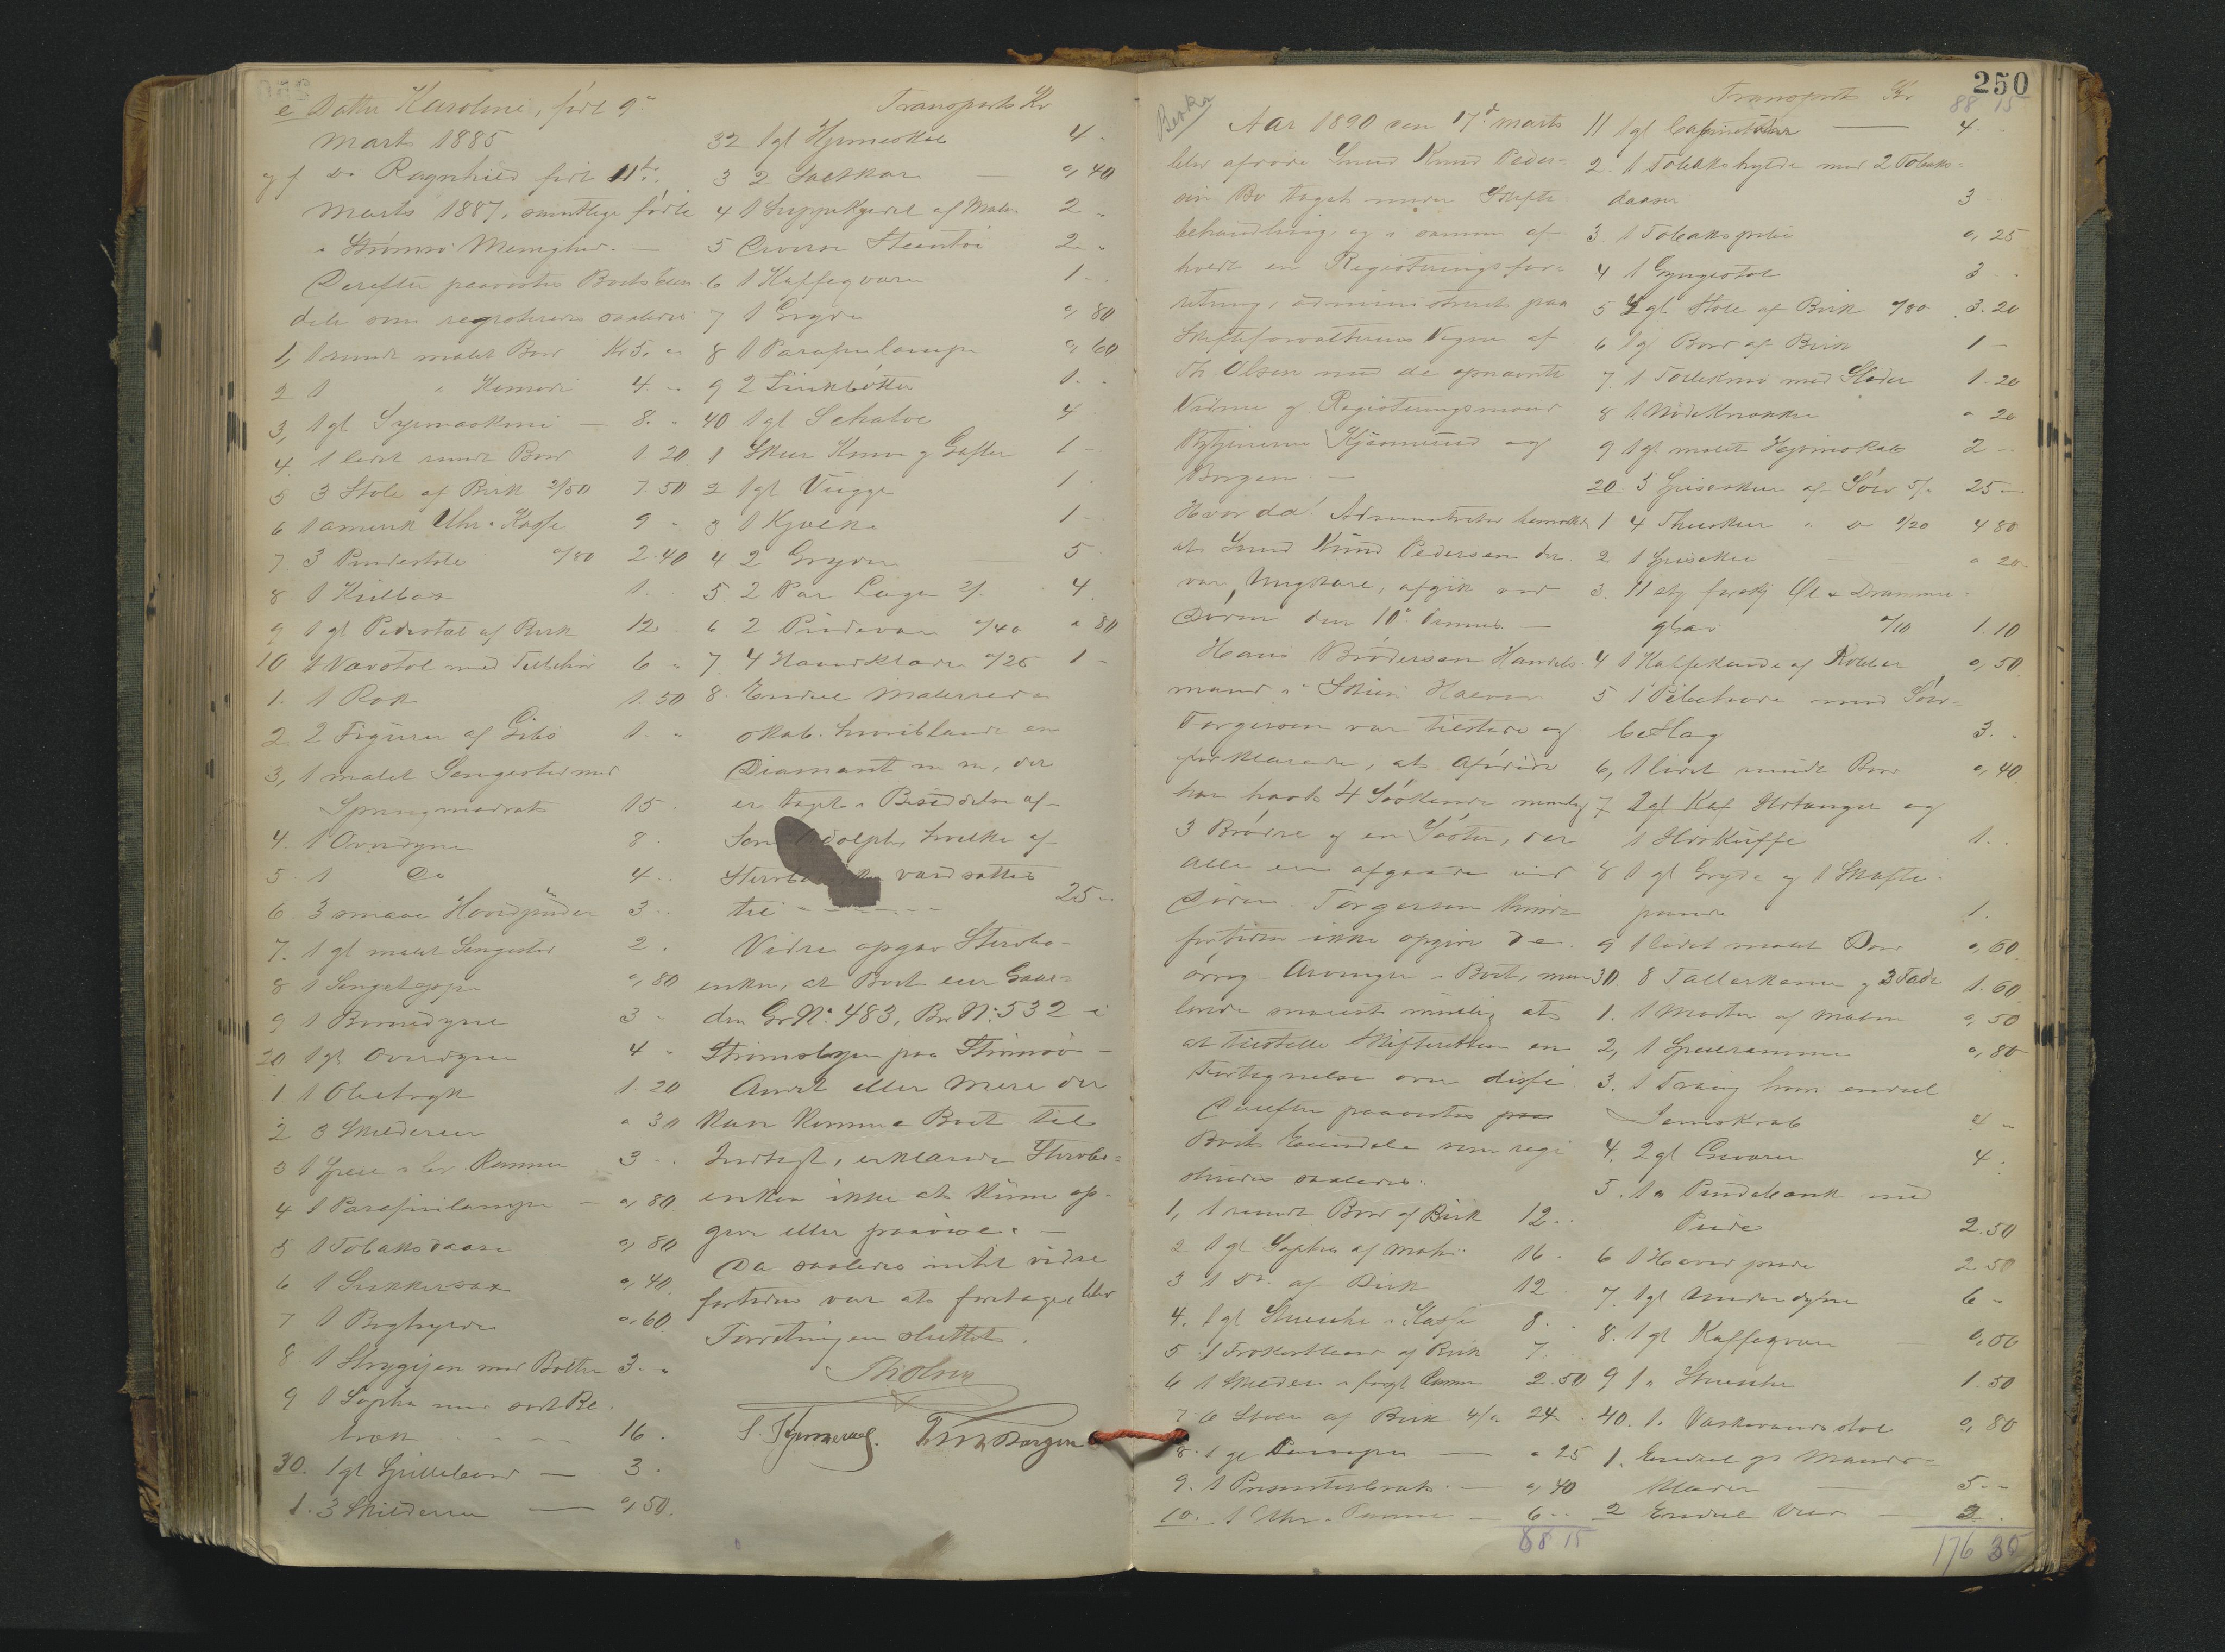 e Datter Karoline, født 9de
Marts 1885
og f Do Ragnhild født 11te
Marts 1887, samtlige fødte
i Strømsø Menighed. —
Derefter paavistes Boets Eien-
dele som registreredes saaledes
1, 1 rundt malet Bord Kr 5. "
2 1 " Komode 4 - "
3, 1 gl Symaskine — 8. "
4. 1 lidet rundt Bord 1. 20
5 3 Stole af Birk 2/50 7. 50
6 1 amerik Uhr i Kasse 9 "
7. 3 Pindestole "/80 2.40
8 1
9 1 gl Pidestal af Birk 12
10 1 Vævstol med Tilbehør 6 "
1. 1 Rok 1. 50
2. 2 Figurer af Gibs 1. "
3, 1 malet Sengested med
Springmadrats 15 .
4. 1 Overdyne 8 .
5. 1 Do 4 ..
6. 3 smaae Hovedpuder 3 ..
7. 1 gl malet Sengested 2 .
8 1 Sengetæppe ", 80
9 1 Underdyne 3 "
20 1 gl Overdyne 4 "
1 1 Olietryk 1. 20
2 3 Skilderier " 30
3 1 Speil i Ramme 3 ..
4 1 Parafinlampe — ", 80
5 1 Tobaksdaase ", 80
6 1 Sukkersax ", 40
7 1 Boghylde ", 60
8. 1 Strygejern med Bolter 3. "
9 1 Sopha med sort Be
træk - - - - 16 .
30. 1 gl Spillebord — 3 .
1. 3 Skilderier — ", 50.
Transport Kr
32 1 gl Hjørneskab 4 -
3 2 — ", 40
4 1 Suppekjedel af Malm 2 "
5 Diverse Steentøi 2 "
6 1 Kaffeqværn 1 -
7 1 Gryde ", 80
8 1 Parafinlampe ", 60
9 2 Zinkbøtter 1. .
40 1 gl Schatol 4
1 Skeer Knive og Gafler 1 -
2 1 gl Vugge 1 .
3 1 Kjælke 1 -
4 2 Gryder — 5 .
5. 2 Par Lagen 2/- 4
6 2 Pudevar "/40 " 80
7. 4 Haandklæder "/25 1 -
8. Endeel Malerred-
skab. hvoriblandt en
Diamant m. m., der
er taget i Besiddelse af
Søn Adolph, hvilke af
vardsattes
til - - - - - - 25 "
Videre opgav Stervbo-
enken, at Boet eier Gaar-
den Gr N: 483, Br N: 532 i
Strømsbyen paa Strømsø -
Andet eller mere der
kan komme Boet til
Indtægt, erklærede Stervbo-
enken ikke at kunne op-
give eller paavise. —
Da saaledes intet videre
fortiden var at foretage blev
Forretningen sluttet.
Th Olsen
Borgen
250
Transport Kr 88 15
Aar 1890 den 17d Marts
blev afdøde Knud Peder-
sen Bo taget under Skifte-
behandling, og i samme af-
holdt en Registreringsfor-
retning, administreret paa
Skifteforvalterens Vegne af
Th. Olsen med de opnævnte
Vidner og Registreringsmænd
og
Borgen —
Hvorda! Administrator bemærkede
at Knud Pedersen der
var Ungkarl, afgik ved
Døden den 10de dennes. —
Hans Brodersøn Handels-
mand i Skien Halvor
Torgersen var tilstede og
forklarede, at Afdøde
har havt 4 Søskende nemlig
3 Brødre og en Søster, der
alle ere afgaaede ved
Døden. - Torgersen kunde
fortiden ikke opgive de
øvrige Arvinger i Boet, men
lovede snarest mulig at
at tilstille Skifteretten en
Fortegnelse over disse
Derefter paavistes paa
Boets Eiendele som regi
streredes saaledes.
1, 1 rundt Bord af Birk 12 ..
2 1 gl Sopha af Mah. 16 .
3 1 Do. af Birk 12
4. 1 gl i Kasse 8 .
5 1 af Birk 7 .
6 1 Skilderi i forgt Ramme 2.50
7 6 Stole af Birk 4/" 24 .
8. 1 gl Lampe — " 25
9. 1 — ", 40
10. 1 Uhr i Ramme — 6 ..
88 15
11 1 gl — 4.
2. 1 Tobakshylde med 2 Tobaks-
daaser 3
3. 1 Tobakspibe ", 25
4 1 Gyngestol 3 .
5 4 gl. Stole af Birk "/80 3.20
6 1 gl Bord af Birk 1 -
7. 1 med Glader 1 20
8 1 Nøddeknækker " 20
9 1 gl malet Hjørneskab 2 -
20. 5 Spiseskeer af Sølv 5/- 25 -
1 4 Theskeer " Do 1/20 4 80
2 1 Spiseskee " 20
3. 11 stk forskj Øl & Dramme-
glas "/10 1. 10
4 1 Kaffekande af Kobber ", 50
5 1 Pibehoved med Sølv-
beslag 3. .
6, 1 lidet rundt Bord ", 40
7 og
1 1. .
8 1 gl Gryde og 1 Skafte-
pande 1.
9 1 lidet malet Bord ", 60
30. 8 Tallerkener og 3 Fade 1. 60
1. 1 Morter af Malm ", 50
2, 1 Speilramme ", 80
3. 1 Traug hvori endeel
Jernskrab 4 -
4. 2 gl 4 .
5. 1 " Pindebænk med
Pude 2.50
6 1 Hovedpude 2 50
7. 1 gl Underdyne 6 -
8. 1 gl Kaffeqværn
9 1 " 1. 50
40. 1. Vaskevandsstol ", 80
1. Endeel gl Mands-
klæder 5 - -
2 Endeel Ved
176 30